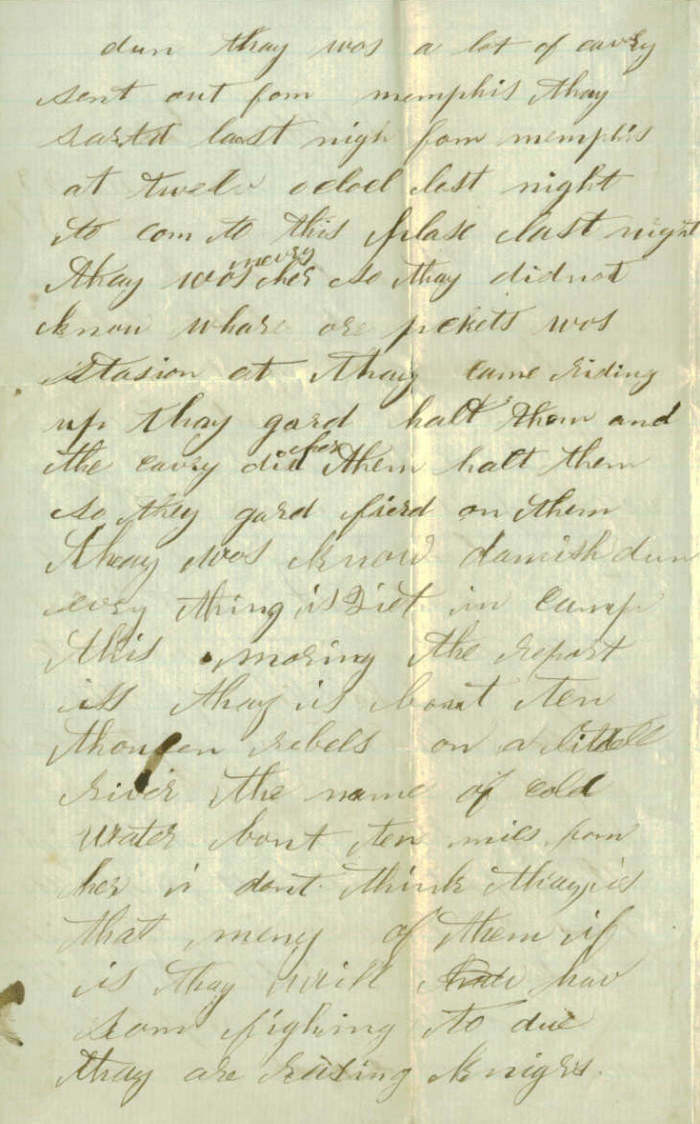 dun thay was a lot of cavry
sent out fom memphis thay
sartd last nigh fom memphis
at twelv oclock last night
to com to this plase last night
thay wos nevry her so thay did not
know whare ore pekits wos
stasion at thay came riding
up thay gard halt them and
the cavry did her them halt them
so they gard fierd on them
thay wos know damish dun
evry thing is Qiet in camp
this moring the report
iss thay is bout ten
thousen rebels on a littell
river the name of cold
water bout ten miles fom
her i dont think thay is
that meny of them if
is thay will hav
som fighing to due
thay are